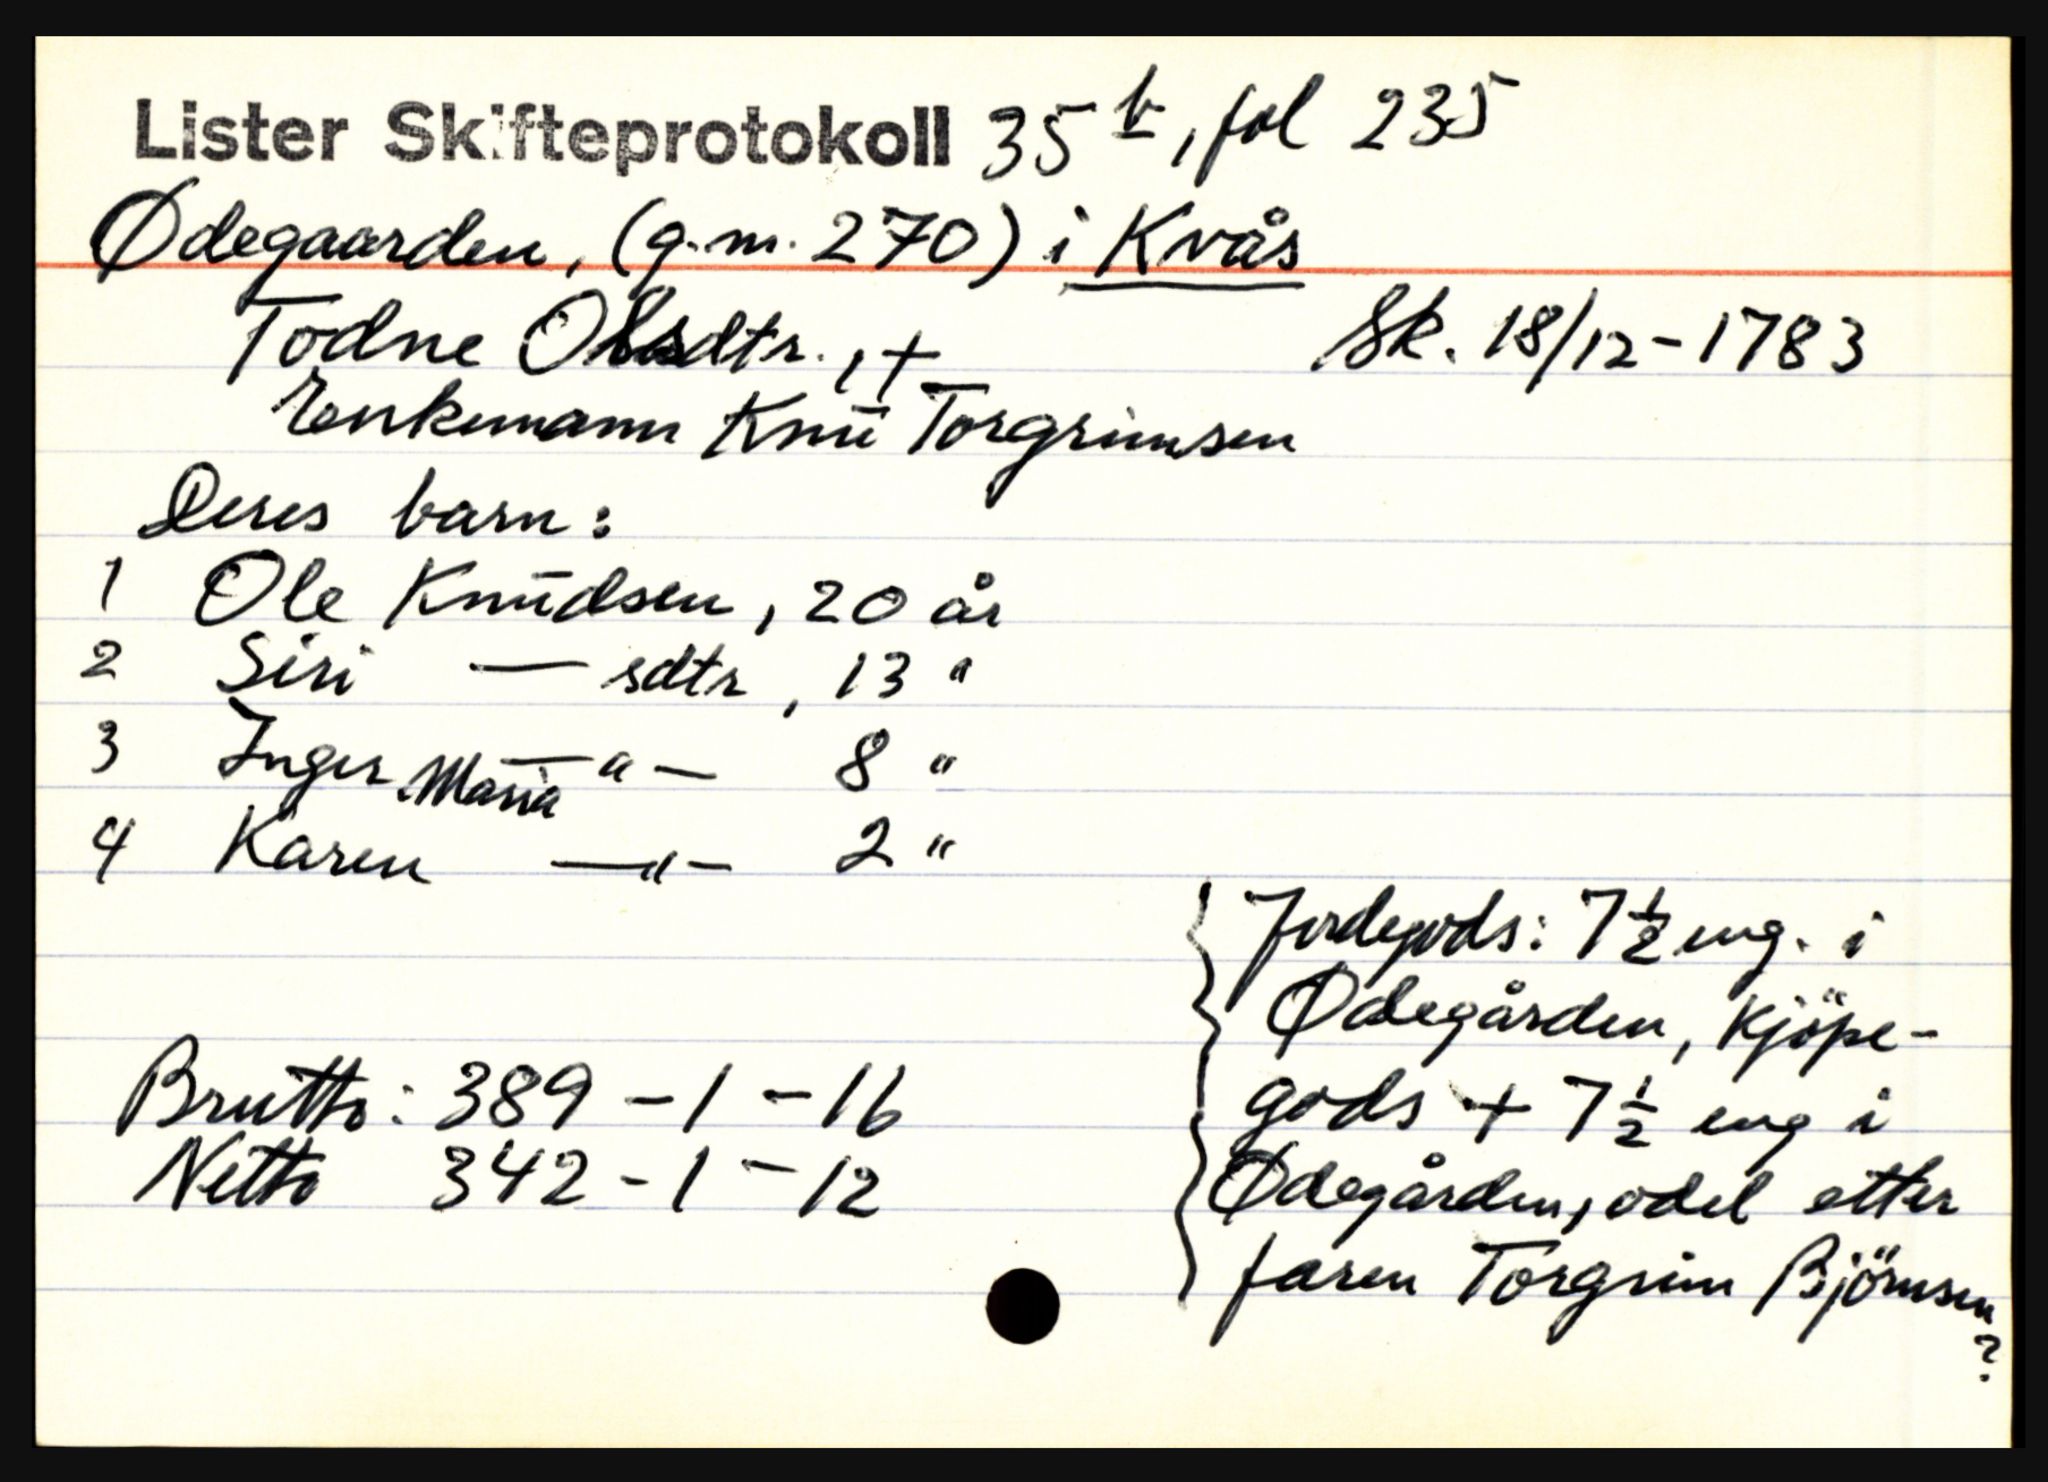 Lister Skifteprotokoll 35 b, fol 235
Ødegaarden, (g.m. 270) i Kvås
Todne Olsdtr., + Sk. 18/12-1783
Enkemann Knu Torgrimsen
Deres barn:
1 Ole Knudsen, 20 år
2 Siri — sdtr, 13 "
3 Inger Maria —"— 8 "
4 Karen —"— 2 "
Jordegods: 7 1/2 eng. i
Ødegården, Kjöpe-
gods + 7 1/2 eng i
Ødegården, odel etter
faren Torgrim Björnsen?
Brutto: 389 - 1 - 16
Netto 342 - 1 - 12